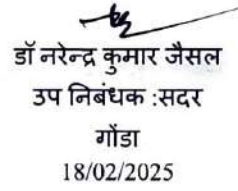 डॉ नरेन्द्र कुमार जैसल
उप निबंधक :सदर
गोंडा
18/02/2025